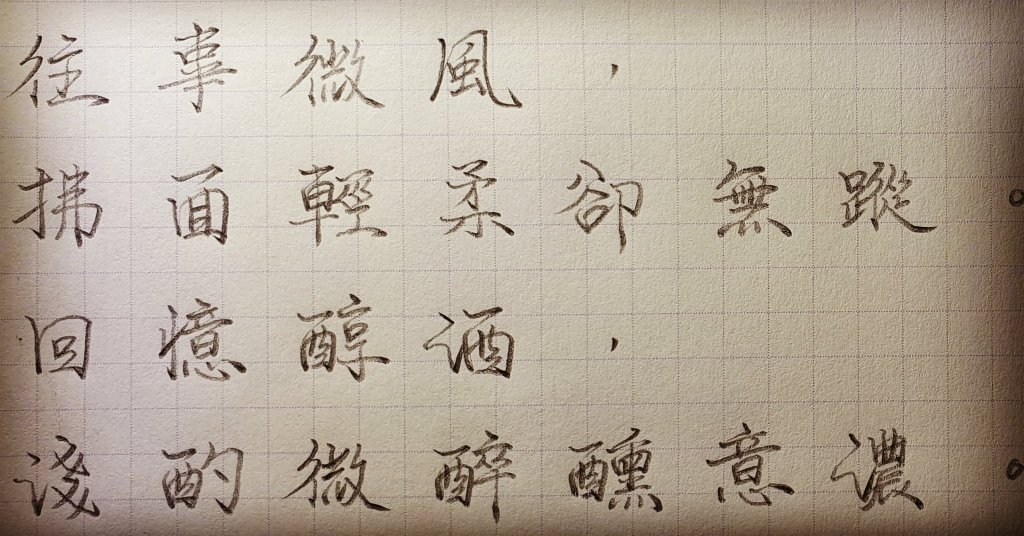 往事微風，
拂面輕柔卻無蹤。
回憶醇酒，
淺酌微醉醺意濃。